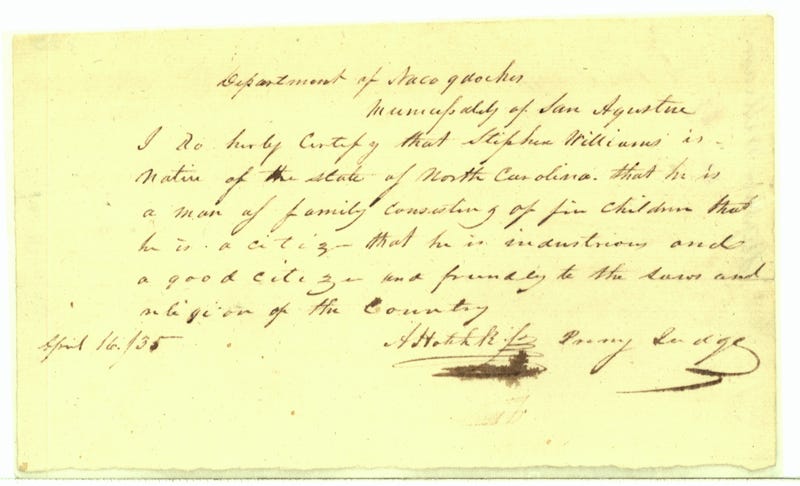 Department of Nacogdoches
Municipality of San Agustine
I do herby Certify that Stephen Williams is
Native of the state of North Carolina. that he is
a man of family consisting of five children that
he is a citize that he is industrious and
a good citize and friendly to the Laws and
religion of the Country
April 16./35 A Hotchkiss Primy Judge